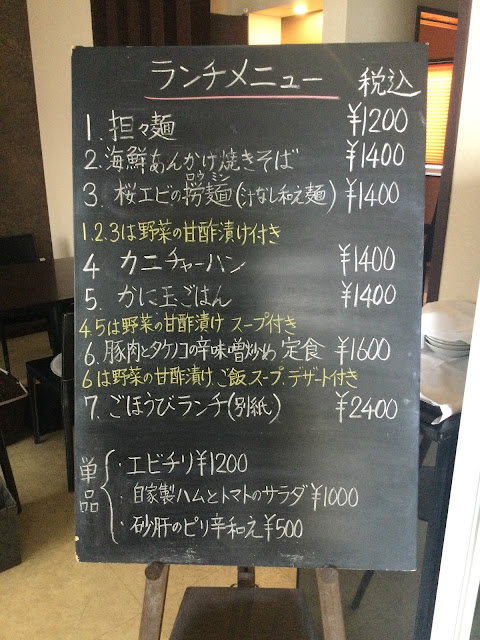 ランチメニュー 税込
1. 担々麺 ¥1200
2. 海鮮あんかけ焼きそば ¥1400
ロウミン
3. 桜エビの撈麺(汁なし和え麺) ¥1400
1.2.3は野菜の甘酢漬け付き
4 カニチャーハン ¥1400
5. かに玉ごはん ¥1400
4.5は野菜の甘酢漬け スープ付き
6. 豚肉とタケノコの辛味噌炒め 定食 ¥1600
6は野菜の甘酢漬け ご飯 スープ. デザート付き
7. ごほうびランチ(別紙) ¥2400
単品
・エビチリ¥1200
・自家製ハムとトマトのサラダ¥1000
・砂肝のピリ辛和え¥500